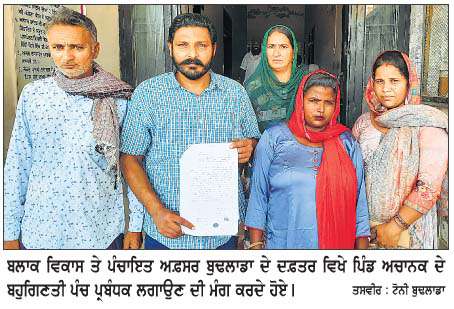 ਬਲਾਕ ਵਿਕਾਸ ਤੇ ਪੰਚਾਇਤ ਅਫ਼ਸਰ ਬੁਢਲਾਡਾ ਦੇ ਦਫ਼ਤਰ ਵਿਖੇ ਪਿੰਡ ਅਚਾਨਕ ਦੇ
ਬਹੁਗਿਣਤੀ ਪੰਚ ਪ੍ਰਬੰਧਕ ਲਗਾਉਣ ਦੀ ਮੰਗ ਕਰਦੇ ਹੋਏ।
ਤਸਵੀਰ : ਟੋਨੀ ਬੁਢਲਾਡਾ